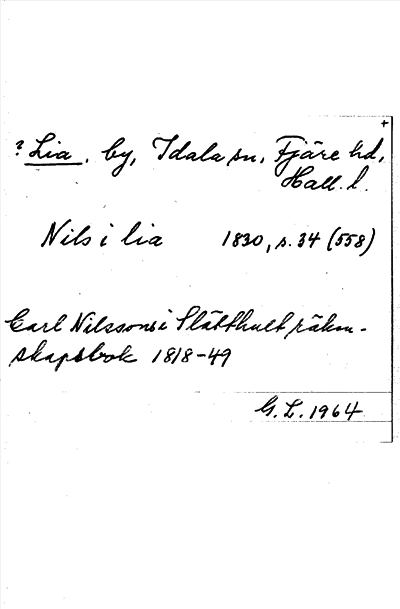 +
? Lia, by, Idala sn, Fjäre hd,
Hall. l.
Nils i lia 1830, s. 34 (558)
Carl Nilssons i Slätthult räken-
skapsbok 1818-49
G. L. 1964